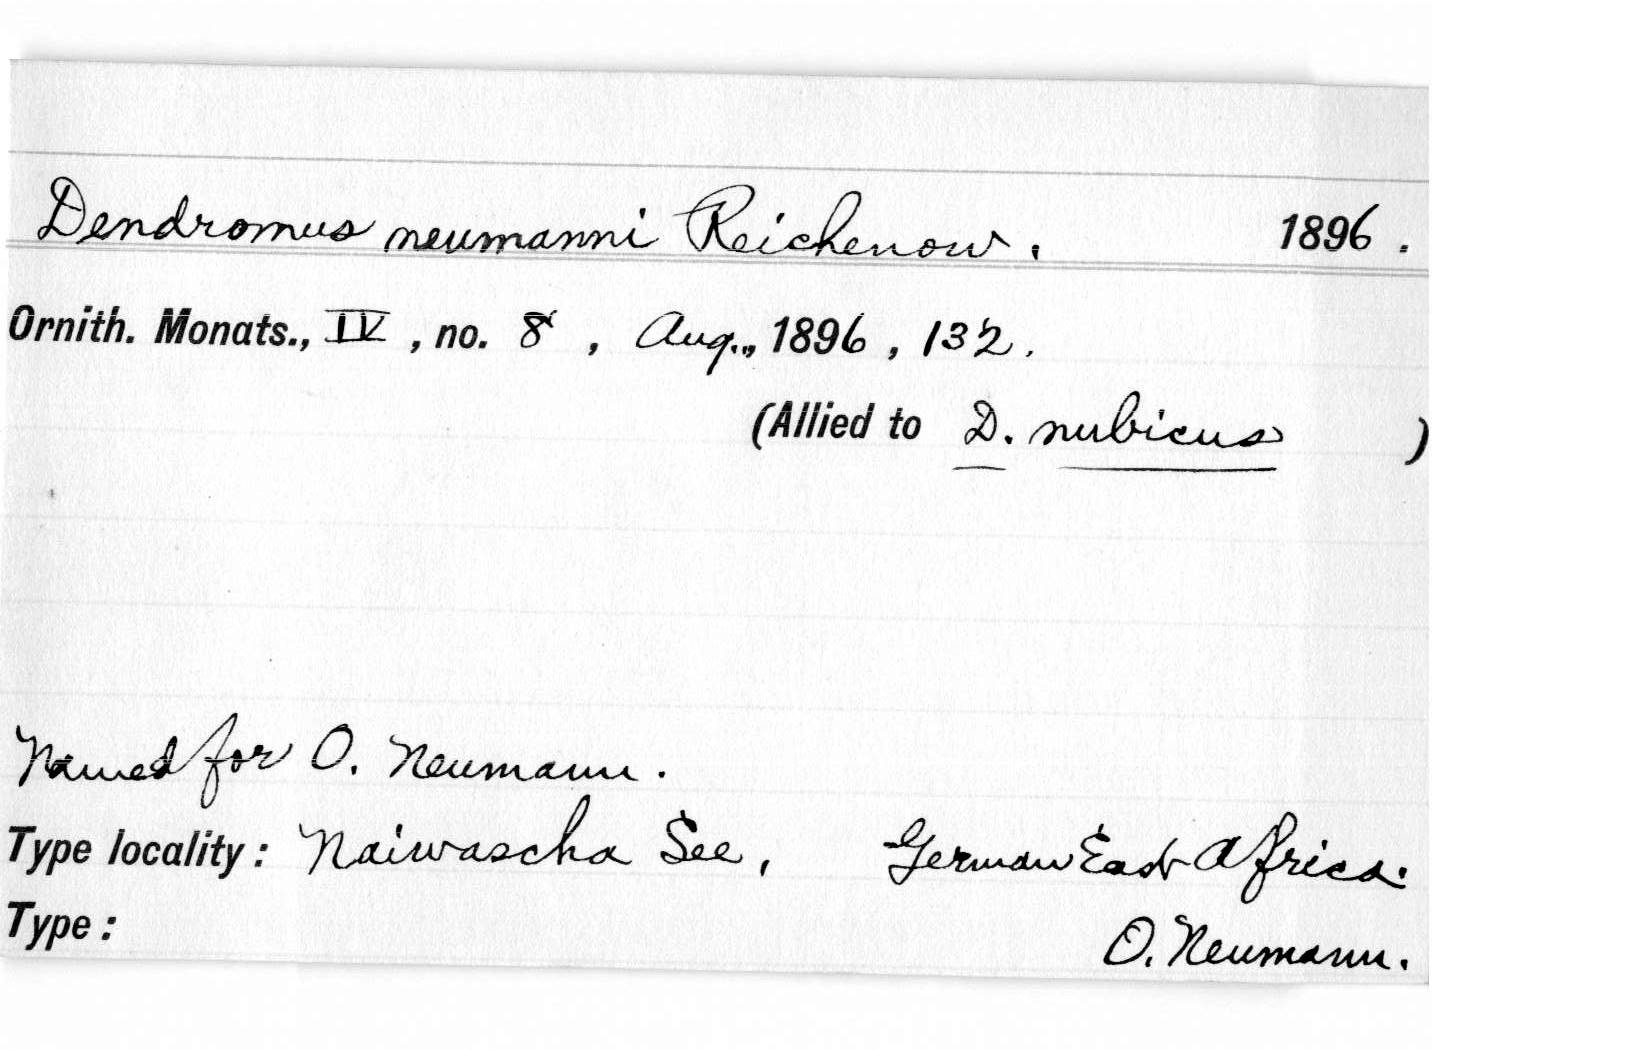 Dendromus neumanni Reichenow. 1896.
Ornith. Monats., IV, no. 8, Aug., 1896, 132.
(Allied to D. nubicus )
Named for O. Neumann.
Type locality: Naiwascha See, German East Africa.
Type: O. Neumann.